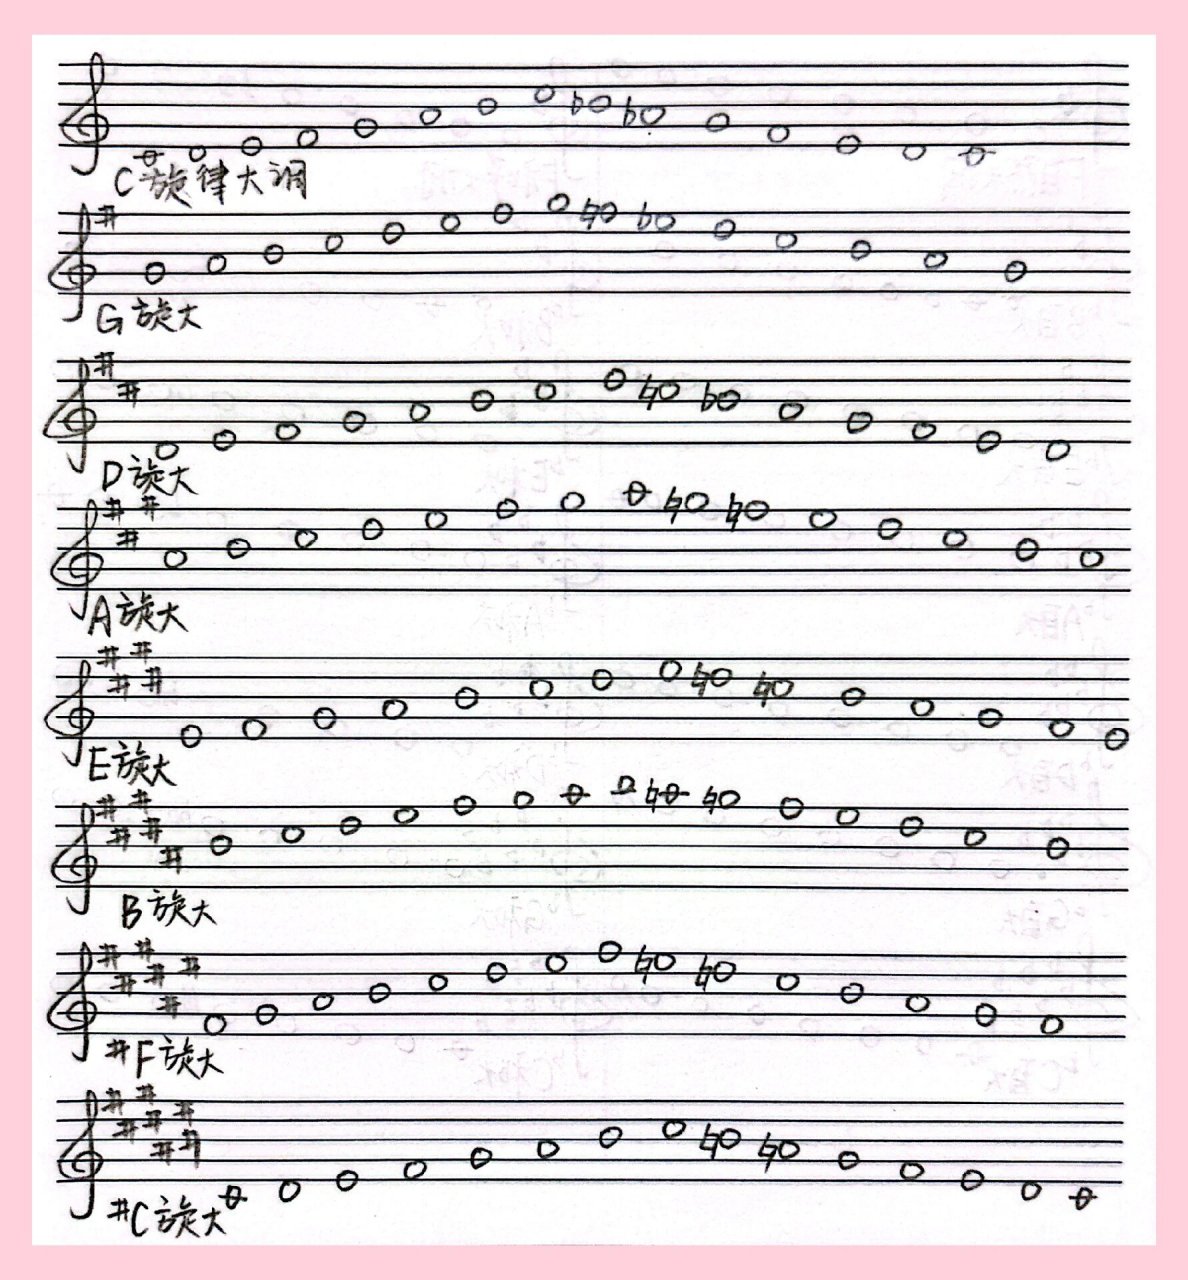 C旋律大调
G旋大
D旋大
A旋大
E旋大
B旋大
#F旋大
#C旋大